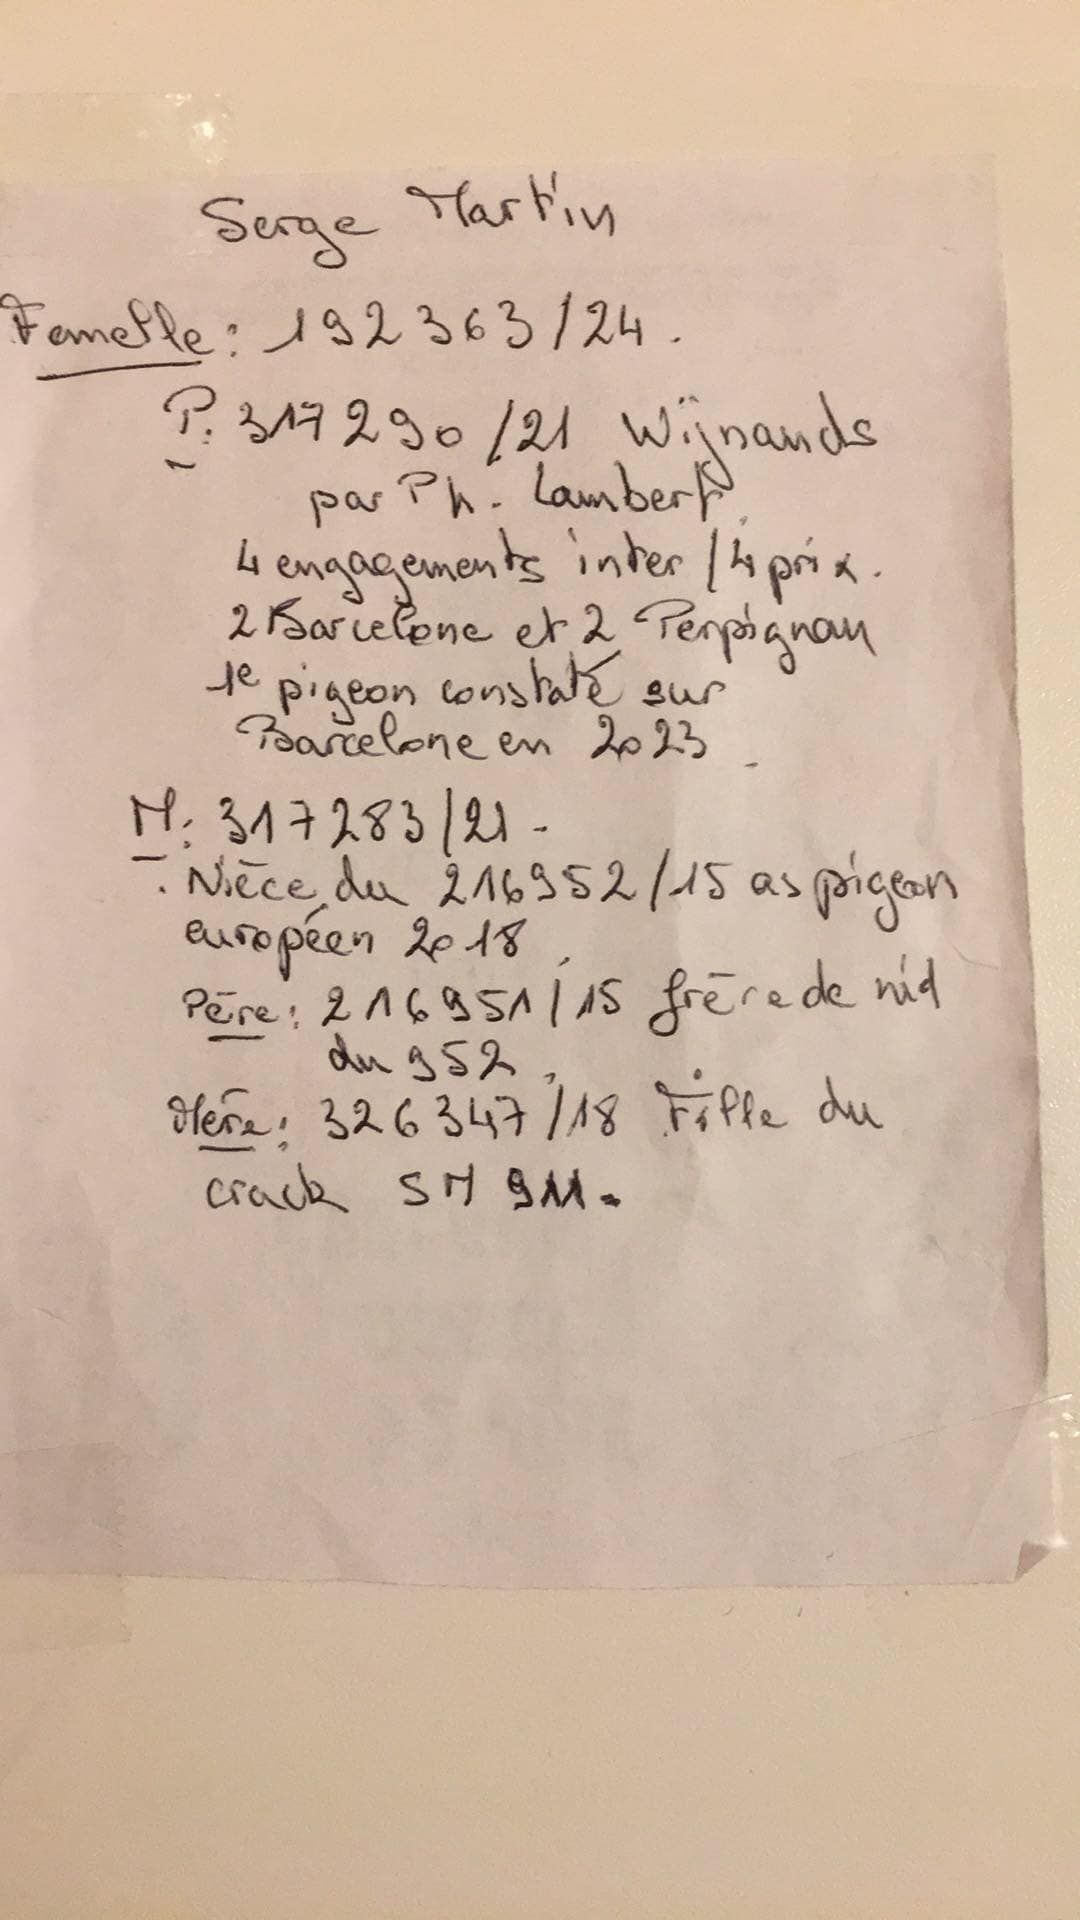 Serge Martin
Femelle : 192 363/24.
P: 317 290/21 Wijnands
par Ph. Lambert
4 engagements inter/4 prix.
2 Barcelone et 2 Perpignan
1e pigeon constaté sur
Barcelone en 2023.
M: 317283/21-
. Nièce du 216952/15 as pigeon
européen 2018.
Père: 216951/15 frère de nid
du 952.
Mère: 326347/18 Fille du
crack SM 911.